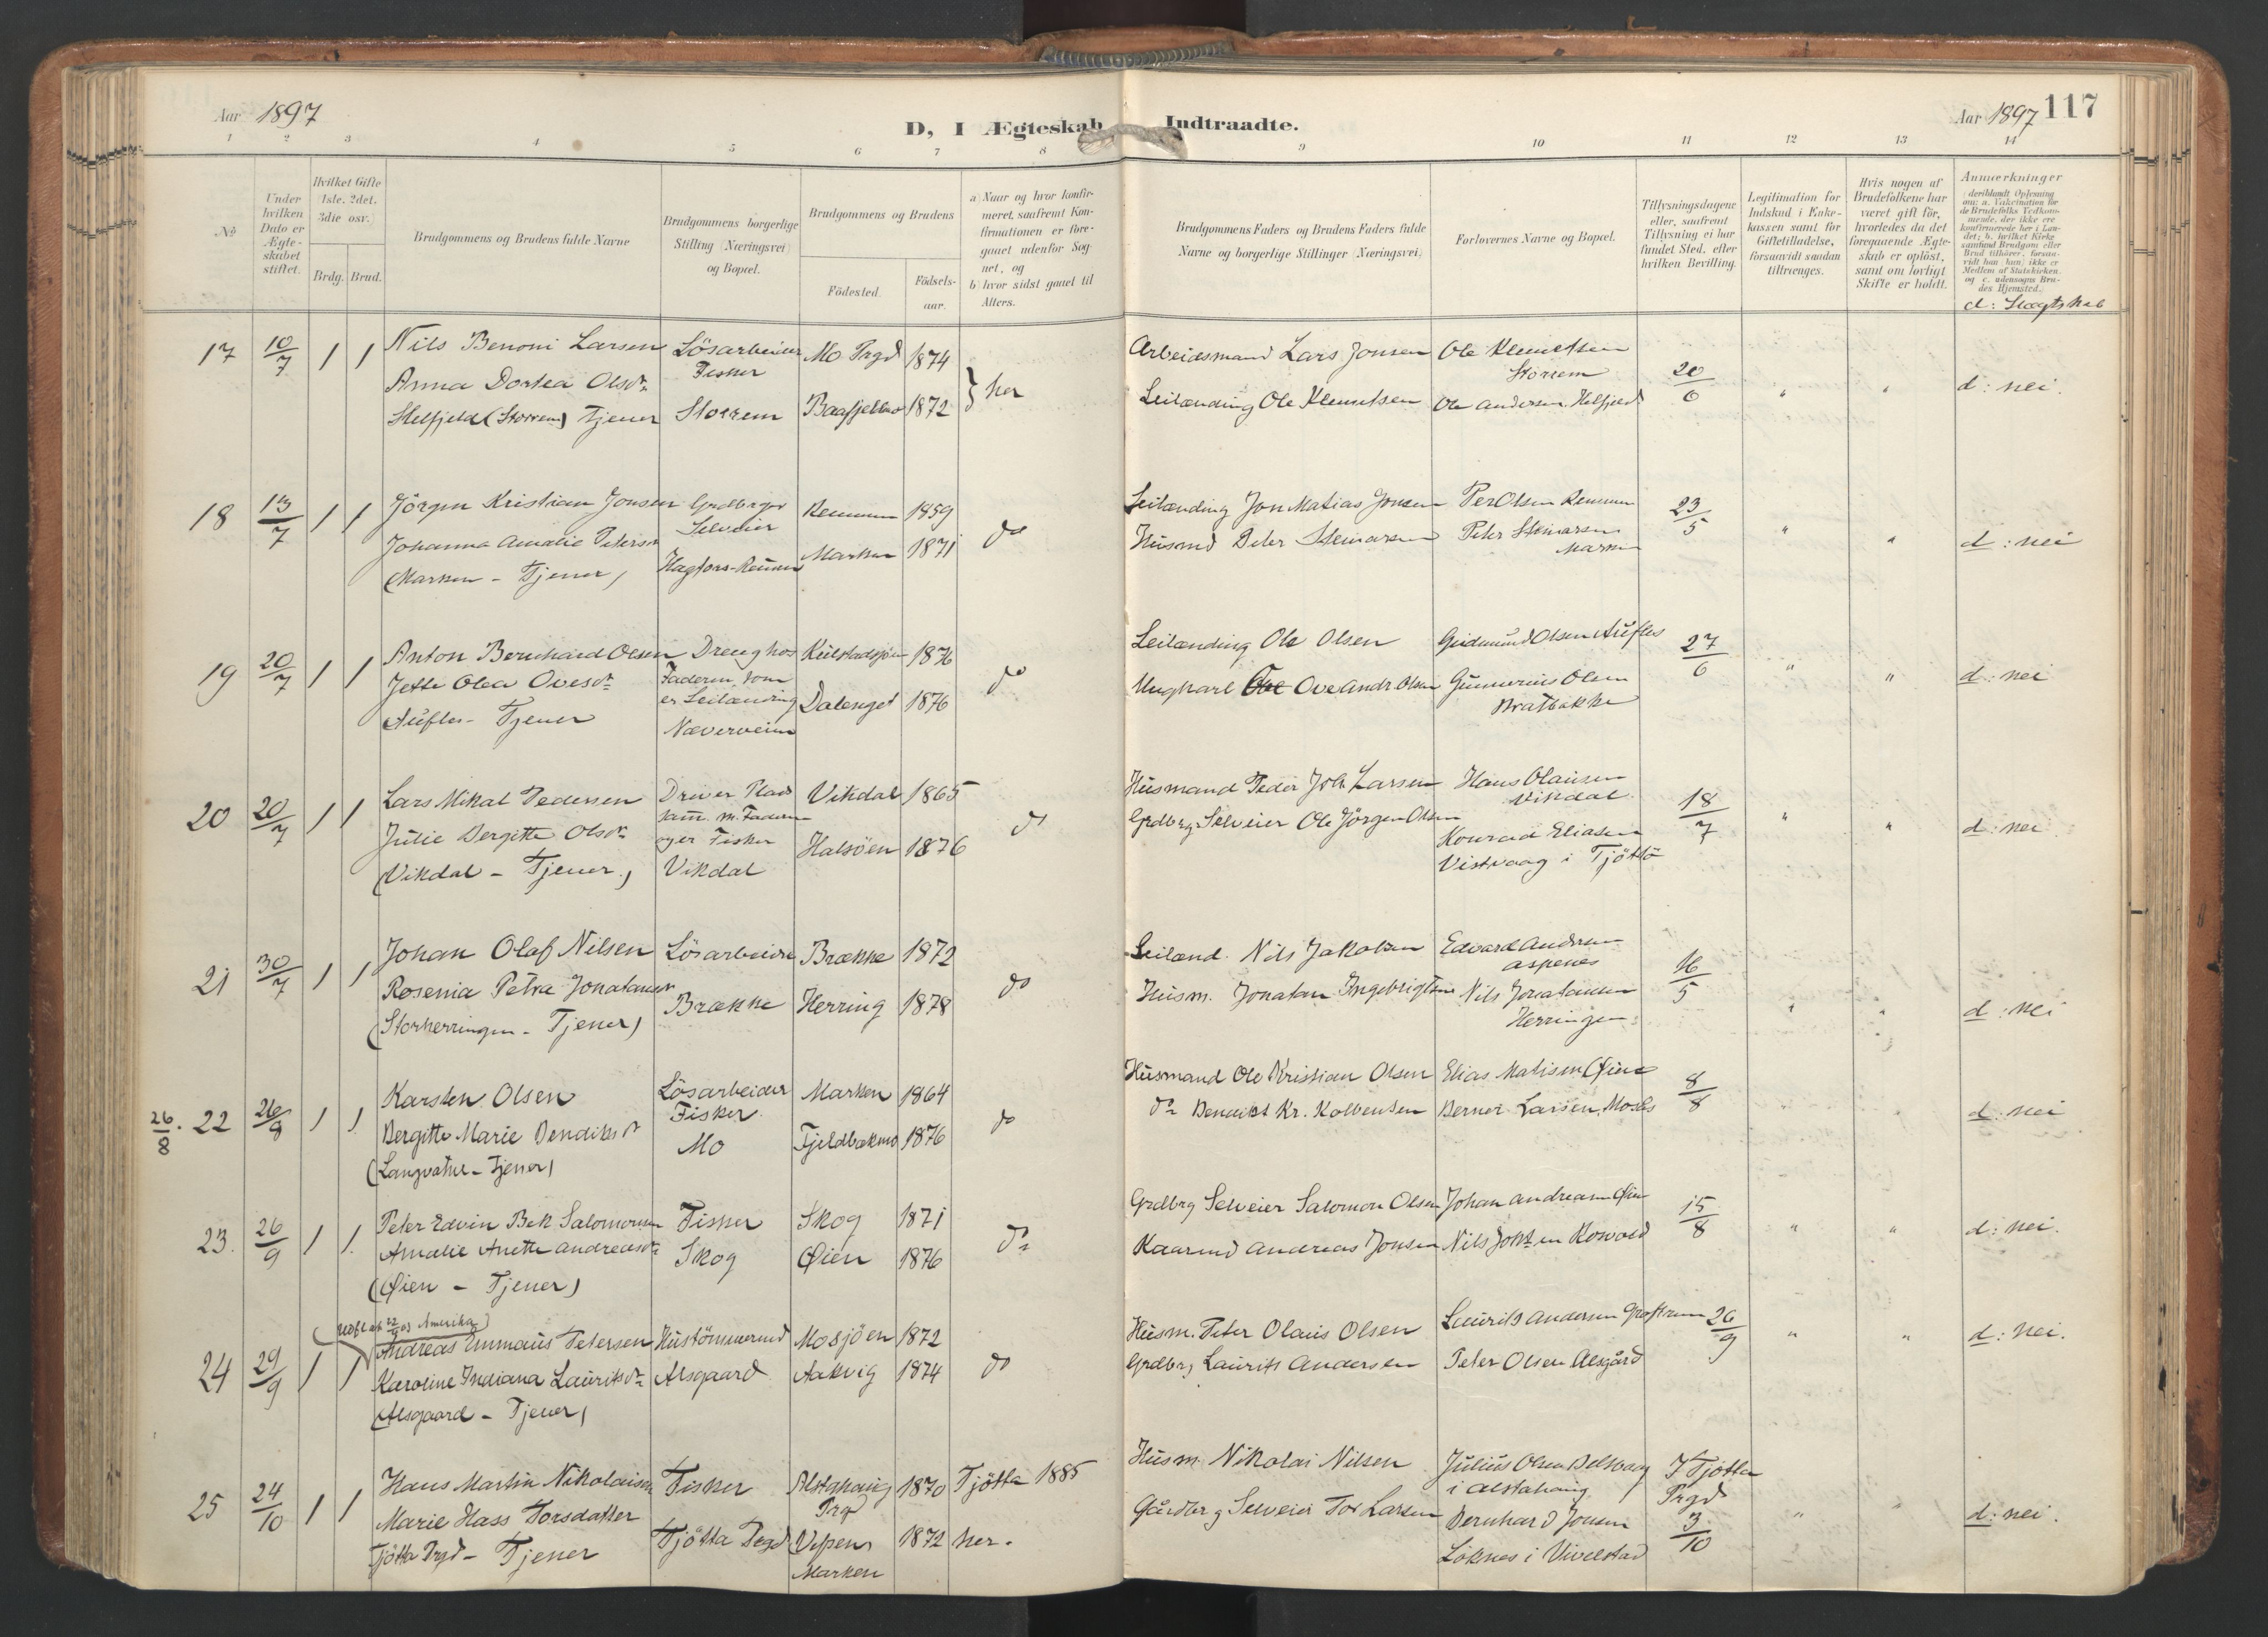 Aar 1897
D, I Ægteskab Indtraadte.
Aar 1897 117
1 2 3 4 5 6 7 8 9 10 11 12 13 14
№
Under hvilken Dato er Ægteskabet stiftet.
Hvilket Gifte 1ste, 2det, 3die osv.)
Brdg. Brud.
Brudgommens og Brudens fulde Navne
Brudgommens borgerlige Stilling (Næringsvei) og Bopæl.
Brudgommens og Brudens
Födested.
Födsels-aar.
a Naar og hvor konfir-
meret, saafremt Kon-
firmationen er fore-
gaaet udenfor Sog-
net, og
b) hvor sidst gaaet til
Alters.
Brudgommens Faders og Brudens Faders fulde
Navne og borgerlige Stillinger (Næringsvei)
Forlovernes Navne og Bopæl.
Tillysningsdagene
eller, saafremt
Tillysning ei har
fundet Sted, efter
hvilken Bevilling.
Legitimation for
Indskud i Enke-
kassen samt for
Giftetilladelse,
forsaavidt saadan
tiltrænges.
Hvis nogen af
Brudefolkene har
været gift för,
hvorledes da det
foregaaende Ægte-
skab er oplöst,
samt om lovligt
Skifte er holdt.
Anmærkninger
(deriblandt Oplysning
om: a. Vakcination for
de Brudefolks Vedkom-
mende, der ikke ere
konfirmerede her i Lan-
det; b. hvilket Kirke
samfund Brudgom eller
Brud tilhörer, forsaa-
vidt han (hun) ikke er
Medlem af Statskirken,
og c. udensogns Bru-
des Hjemsted.
d: Slægtskab
17 10/7 1 1 Nils Benoni Larsen Lösarbeider Mo Prgd 1874 Arbeidsmand Lars Jonsen Ole Klemetsen
Fisker Storrem 20/6
Anna Dortea Olsdr. } her d: nei.
Helfjeld (Storrem) Tjener Storrem Baafjellmo 1872 Leilænding Ole Klemetsen Ole Andersen Helfjeld
18 13/7 1 1 Jörgen Kristian Jonsen Grdbrger Remmen 1859 Leilænding Jon Matias Jonsen Per Olsen Remmen 23/5
Selveier do
Johanna Amalie Petersdr Marken 1871 Husmd Peter Steinarsen Peter Steinarsen d: nei
(Marken - Tjener) Marken
19 20/7 1 1 Anton Bernhard Olsen Dreng hos Kulstadsjöen 1876 Leilænding Ole Olsen Gudmund Olsen Aufles 27/6
Jette Olea Ovesdr. Faderen, som do d: nei
er Leilænding Dalenget 1876 Ungkarl Ove Andr. Olsen Gunnerius Olsen
Aufles - Tjener Næverveien Bratbakke
20 20/7 1 1 Lars Mikal Pedersen Driver Plads Vikdal 1865 Husmand Peder Joh. Larsen Hans Olausen
sam. m. Faderen Vikdal. 18/7
Julie Bergitte Olsdr. og er Fisker Halsöen 1876 do Grdbrg Selveier Ole Jörgen Olsen Konrad Eliasen d: nei.
(Vikdal - Tjener.) Vikdal Vistvaag i Tjöttö
21 30/7 1 1 Johan Olaf Nilsen Lösarbeider Brække 1872 Leilænd. Nils Jakobsen Edvard Andersen
Aspenes 16/5
Rosenia Petra Jonatansdr Brække Herring 1878 do Husm. Jonatan Ingebrigtsen Nils Jonatansen
(Storherringen - Tjener) Herringen d: nei
26/8. 22 26/9 1 1 Karsten Olsen Lösarbeider Marken 1864 Husmand Ole Kristian Olsen Elias Matisen Øien 8/8
Fisker. do
Bergitte Marie Bendiksdr Mo Fjeldbækmo 1876 do Bendikt Kr. Kolbensen Berner Larsen, Mosås d: nei
(Langvatne - Tjener)
23. 26/9 1 1. Peter Edvin Bek Salomonsen Fisker Skog 1871 Grdbrg Selveier Salomon Olsen Johan Andreassen Øien 15/8
Amalie Anette Andreasdr. Skog Øien 1876 do Kaarmd Andreas Jonsen d: nei.
(Øien - Tjener)
Amerika)
24 29/9 1 1 Andreas Emmaus Petersen Hustömmermd Mosjöen 1872 Husm. Peter Olaus Olsen Laurits Andersen 26/9
Karoline Indiana Lauritsdr. Alsgaard Aakvig 1874 do Grdbrg Laurits Andersen Peter Olsen Alsgård d: nei.
(Alsgaard - Tjener)
25 24/10 1 1 Hans Martin Nikolaisen Fisker Alstahaug 1870 Tjötta 1885 Husm. Nikolai Nilsen Julius Olsen Belsvaag I Tjötta
Prgd i Alstahaug Prgd
Marie Hass Torsdatter Tjötta Pegd Vepsen 1872 her. Gårdbrg Selveier Tor Larsen Bernhard Jonsen 3/10 d: nei.
Tjötta Prgd - Tjener Marken Löknes i Vivelstad